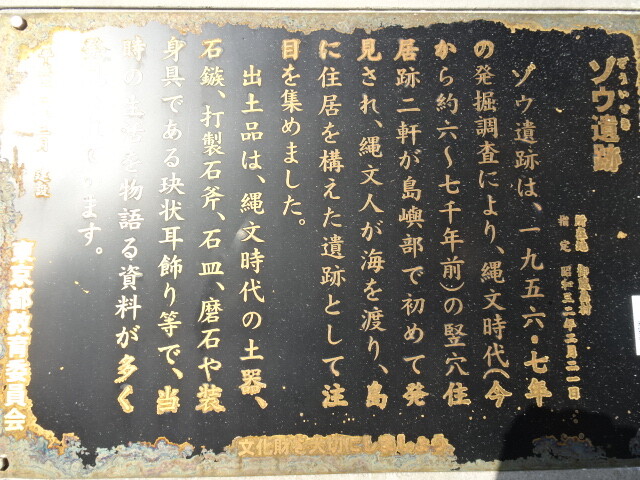 ぞういせき
ゾウ遺跡
所在地 御蔵島村
指定 昭和三二年二月二一日
ゾウ遺跡は、一九五六・七年
の発掘調査により、縄文時代(今
から約六〜七千年前)の竪穴住
居跡二軒が島嶼部で初めて発
見され、縄文人が海を渡り、島
に住居を構えた遺跡として注
目を集めました。
出土品は、縄文時代の土器、
石鏃、打製石斧、石皿、磨石や装
身具である玦状耳飾り等で、当
時の生活を物語る資料が多く
ます。
東京都教育委員会
文化財を大切にしましょう